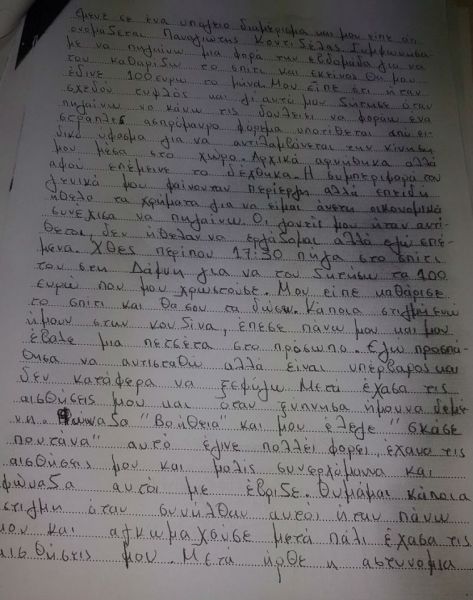 έμενε σε ένα υπόγειο διαμέρισμα και μου είπε ότι
ονομάζεται Παναγιώτης Κοντιδέλας Συμφωνήσα
με να πηγαίνω μια φορά την εβδομάδα για να
του καθαρίζω το σπίτι και εκείνος θα μου
έδινε 100 ευρω το μήνα. Μου είπε ότι ήταν
σχεδόν τυφλός και γι αυτό μου ζήτησε όταν
πηγαίνω να κάνω τις δουλειές να φοράω ένα
στράπλες ασπρόμαυρο φόρεμα υποτίθεται από ει
δικό ύφασμα για να αντιλαμβάνεται την κίνηση
μου μέσα στο χώρο. Αρχικά αρνήθηκα αλλά
αφού επέμεινε το δέχθηκα. Η συμπεριφορά του
γενικά μου φαίνονταν περίεργη αλλά επειδή
ήθελα τα χρήματα για να είμαι άνετη οικονομικά
συνέχισα να πηγαίνω. Οι γονείς μου ήταν αντί
θετοι, δεν ήθελαν να εργάζομαι αλλά εγώ επέ
μενα. Χθες περίπου 17:30 πήγα στο σπίτι
του στη Δάφνη για να του ζητήσω τα 100
ευρω που μου χρωστούσε. Μου είπε καθάρισε
το σπίτι και θα σου τα δώσω. Κάποια στιγμή ενώ
ήμουν στην κουζίνα, έπεσε πάνω μου και μου
έβαλε μια πετσέτα στο πρόσωπο. Εγώ προσπά
θησα να αντισταθώ αλλά είναι υπέρβαρος και
δεν κατάφερα να ξεφύγω. Μετά έχασα τις
αισθήσεις μου και όταν ξύπνησα ήμουνα δεμέ
νη. Φώναζα "Βοήθεια" και μου έλεγε "σκάσε
πουτάνα" αυτό έγινε πολλές φορές έχανα τις
αισθήσεις μου και μόλις συνερχόμουνα και
φώναζα αυτός με έβριζε. Θυμάμαι κάποια
στιγμή όταν συνήλθα αυτός ήταν πάνω
μου και αγκωμαχούσε μετά πάλι έχασα τις
αισθήσεις μου. Μετά ήρθε η αστυνομία